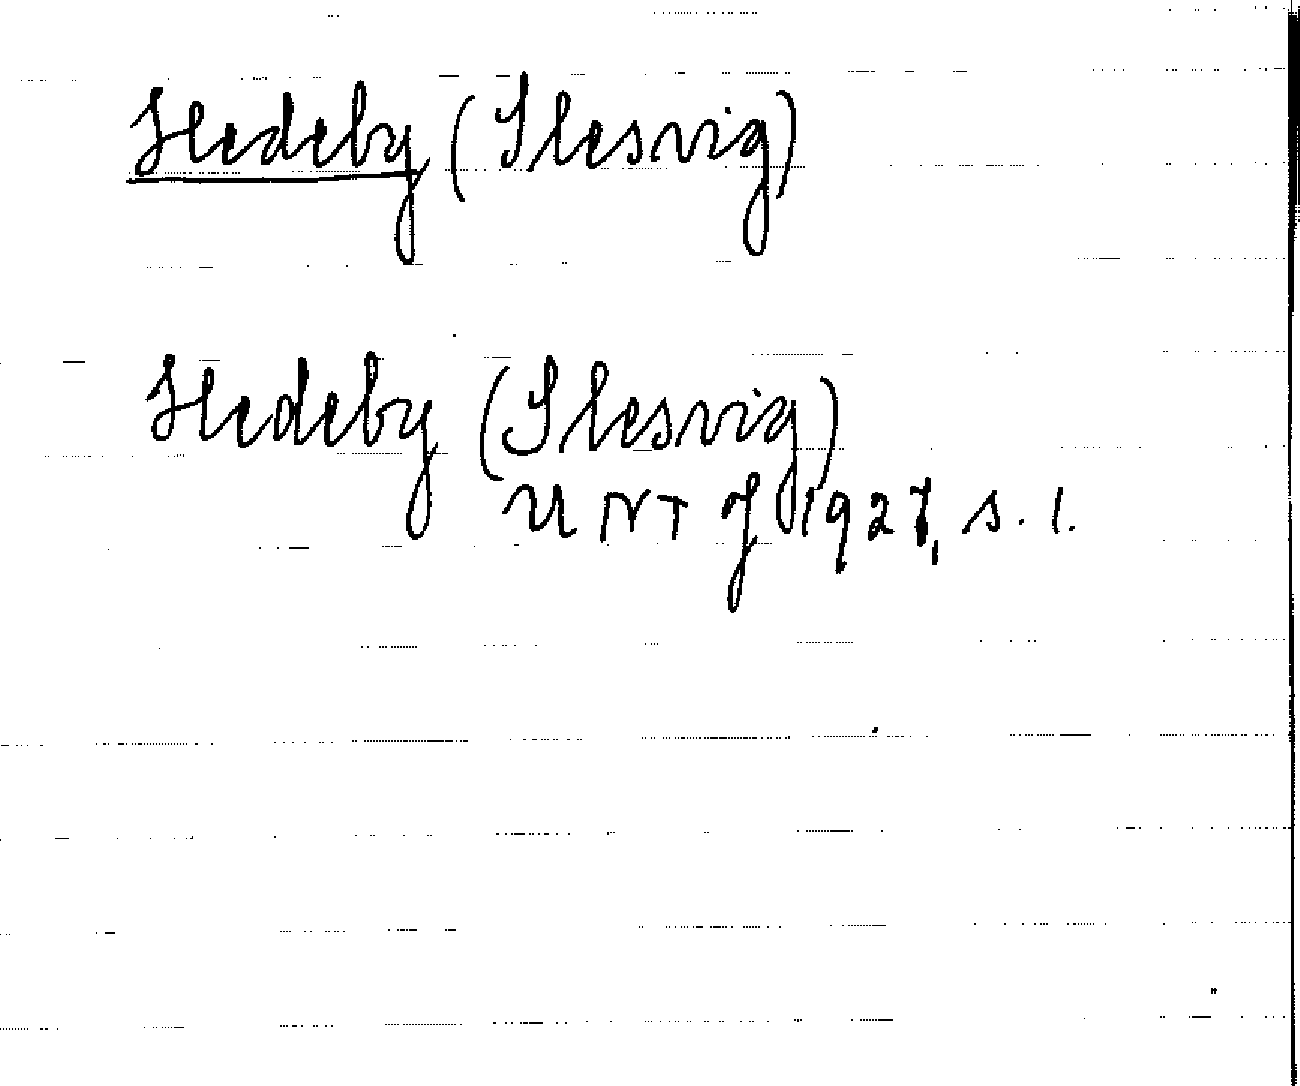 Hedeby (Slesvig)
Hedeby (Slesvig)
UNT J 1927, s. 1.